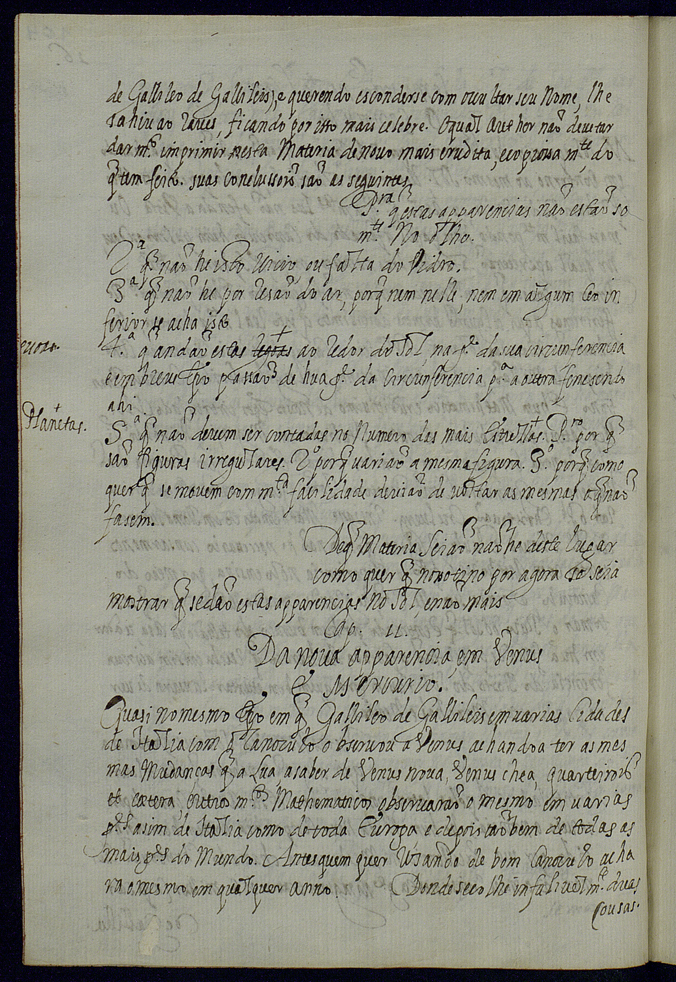 de Gallileo de Gallileis, e querendo esconderse com ocultar seu Nome, lhe
sahiu ao reues, ficando por isto mais celebre. O qual Author não deue tar
dar m.to imprimir nesta Materia de nouo mais erudita, e copiosa m.te, do
q̃ tem feito. suas conclussoẽs são as seguintes.
P.ra q̃ estas apparencias não estão so
m.te No olho.
2.ª q̃ não he isto Vicio ou falta do Vidro.
3.ª q̃ não he por resão do ar, porq̃ nem nelle, nem em algum Ceo in
ferior se acha isto
4.ª q̃ andão estas ao redor do Sol na p.te da sua circunferencia
e em breue tp̃o passão de hua p.te da circunferencia p.ª a outra fenecendo
ahi.
Planetas.
5.ª q̃ não deuem ser contadas no Numero das mais Estrellas. P.ro por q̃
são figuras irregulares. 2.º porq̃ uarião a mesma figura. 3.º porq̃ como
quer q̃ se mouem com m.ta facilidade deuião de uoltar as mesmas o q̃ não
fasem.
De q̃ Materia Seião não he deste lugar
como quer q̃ por agora so seia
mostrar q̃ se dão estas apparencias no Sol e não mais
Cap. 11.
Da noua apparencia, em Venus
E Mercurio.
Quasi no mesmo tp̃o em q̃ Gallileo de Gallileis em uarias Cidades
de Italia com q̃ Canoculo obseruou a Venus achandoa ter as mes
mas Mudancas q̃ a Lua a saber de Venus noua, Venus chea, quarteirois
et cætera, outros m.tos Mathematicos obseruarão o mesmo em uarias
p.tes asim de Italia como de toda Europa e de todas as
mais p.tes do Mundo. Antes quem quer Usando de bom Canoculo acha
ra o mesmo em qualquer anno. Donde se colhe infaliuel m.te duas
Cousas.